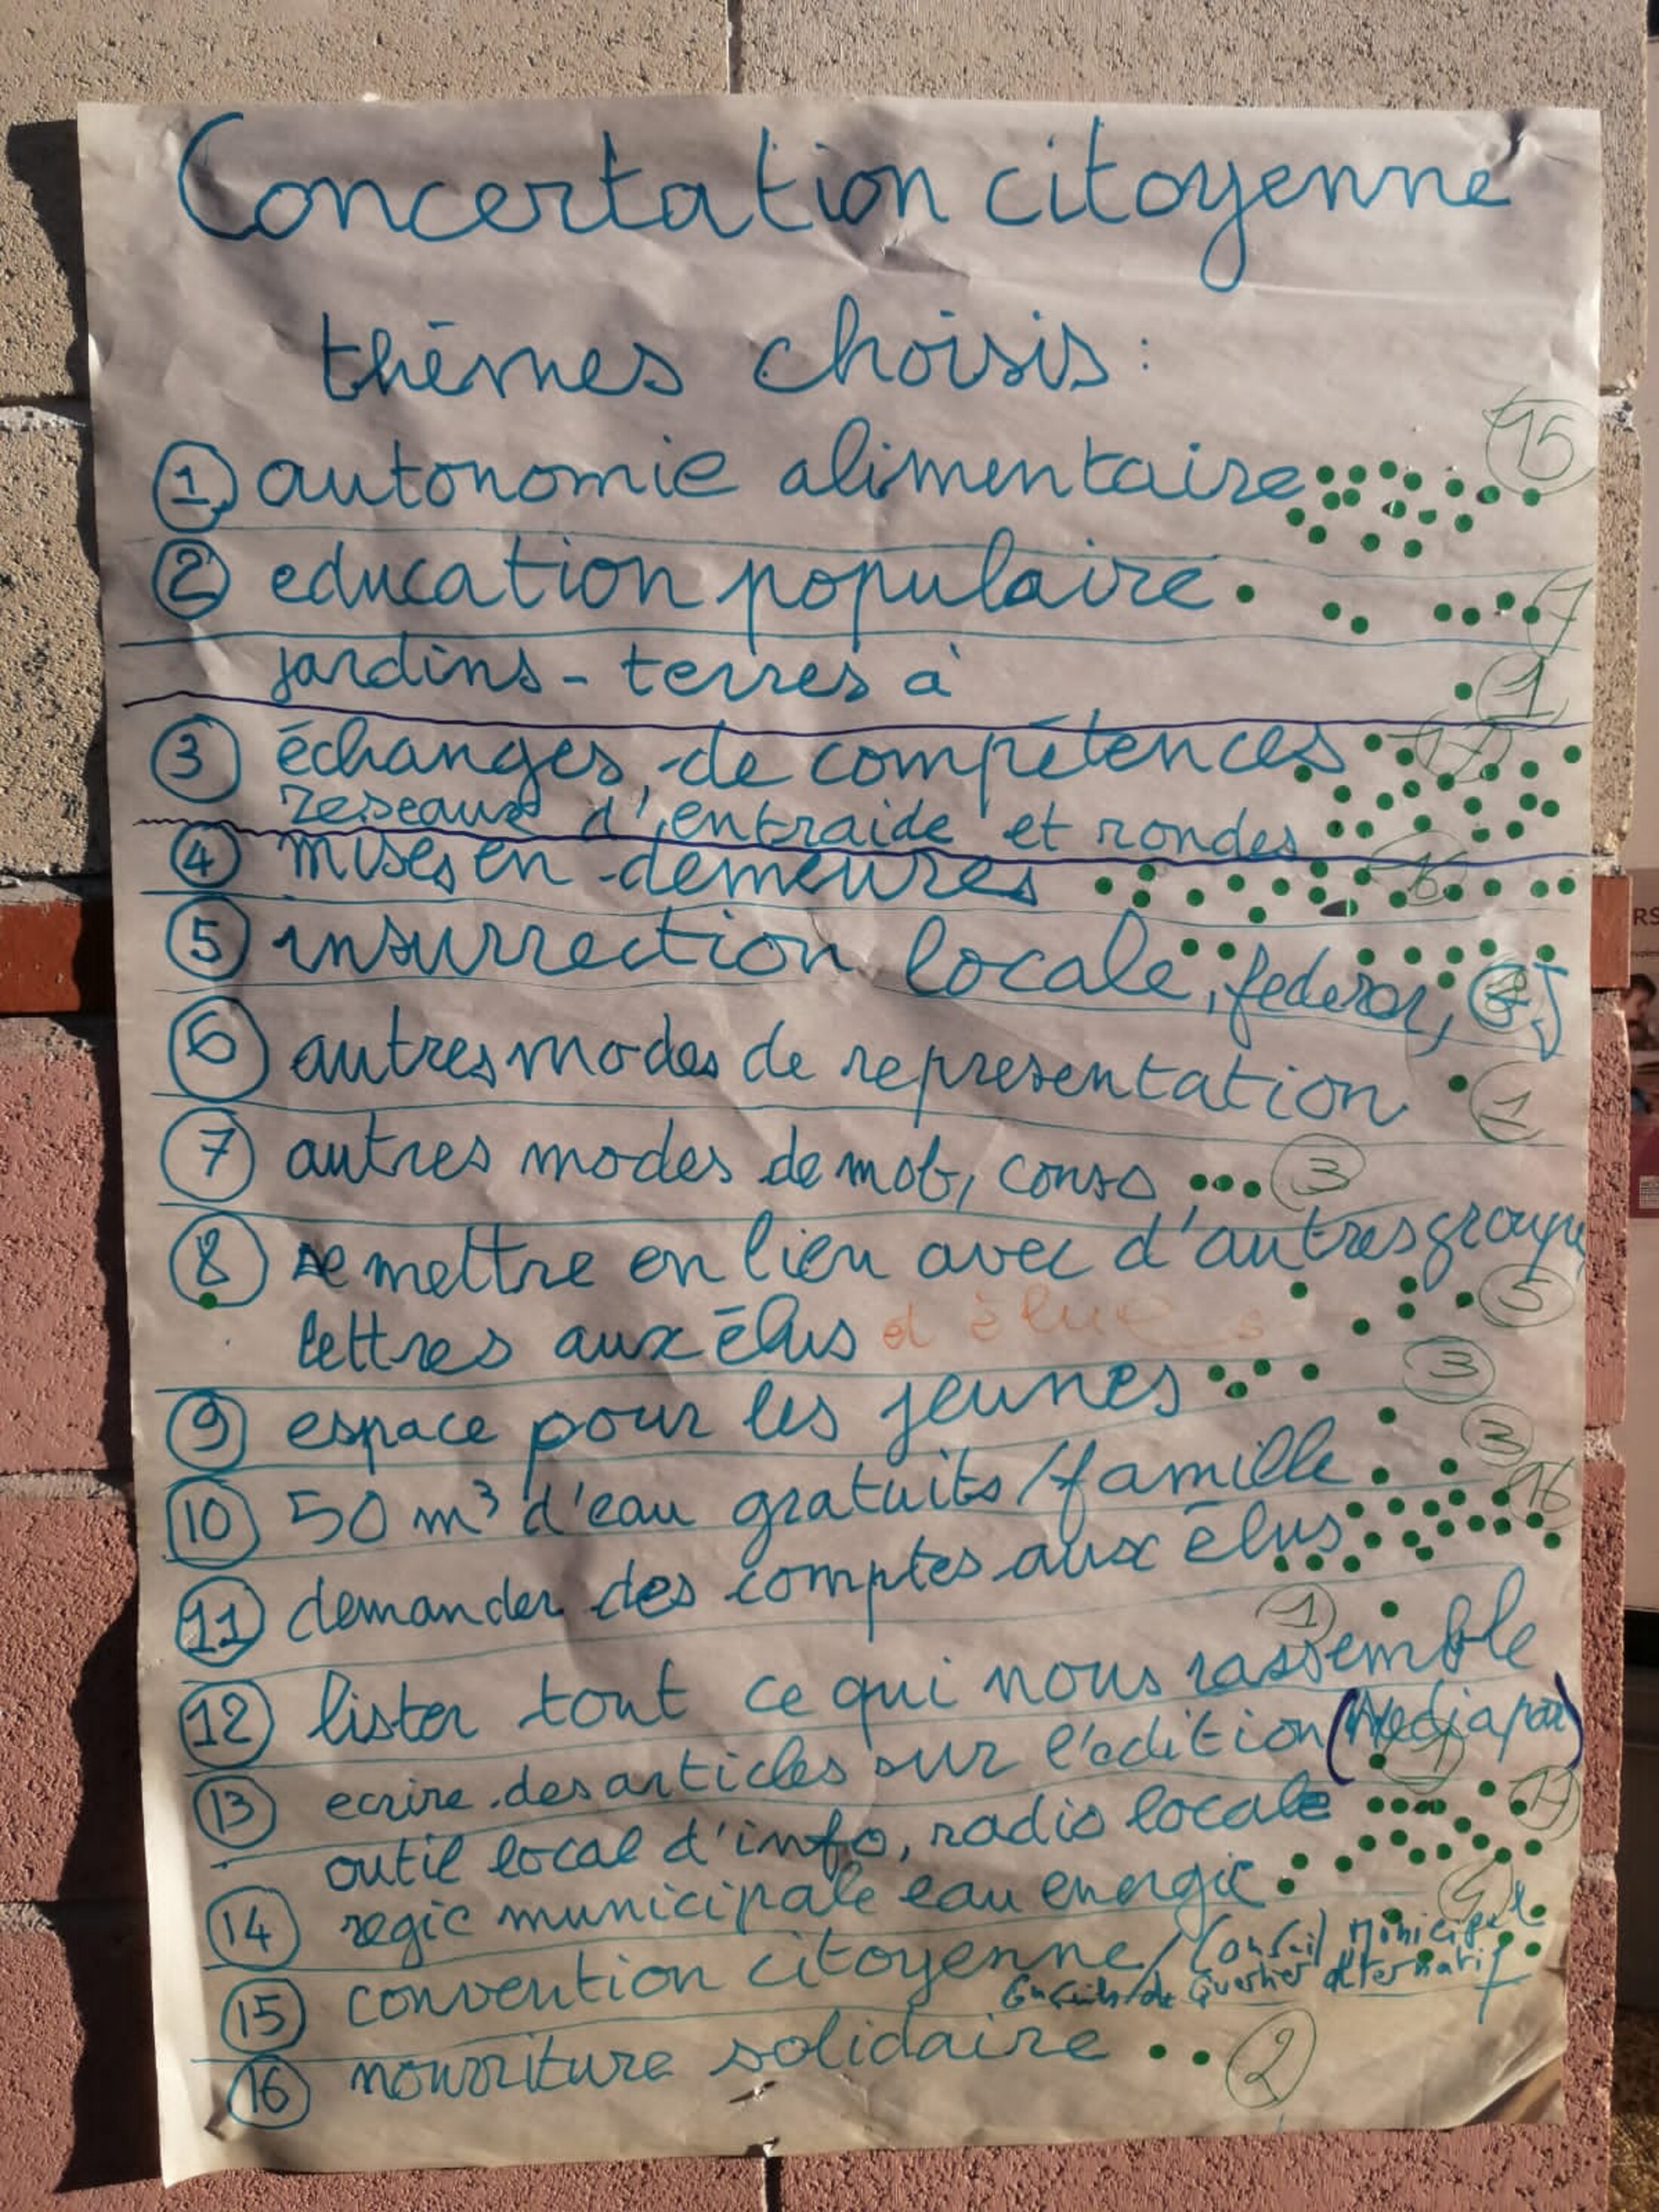 Concertation citoyenne
thèmes choisis :
15
1 autonomie alimentaire
2 education populaire 7
jardins - terres à 1
3 échanges de compétences 17
reseaux d'entraide et rondes
4 mises en demeures 16
5 insurrection locale, federer, GJ
6 autres modes de representation 1
7 autres modes de mob, conso 3
8 se mettre en lien avec d'autres groupes
5
lettres aux élus et élues
3
9 espace pour les jeunes
3
10 50 m³ d'eau gratuits / famille
16
11 demander des comptes aux élus
1
12 lister tout ce qui nous rassemble
13 ecrire des articles sur l'edition (Mediapart)
outil local d'info, radio locale
14 regie municipale eau energie
15 convention citoyenne / Conseil Municipal
Conseils de Quartier alternatif
16 nourriture solidaire 2